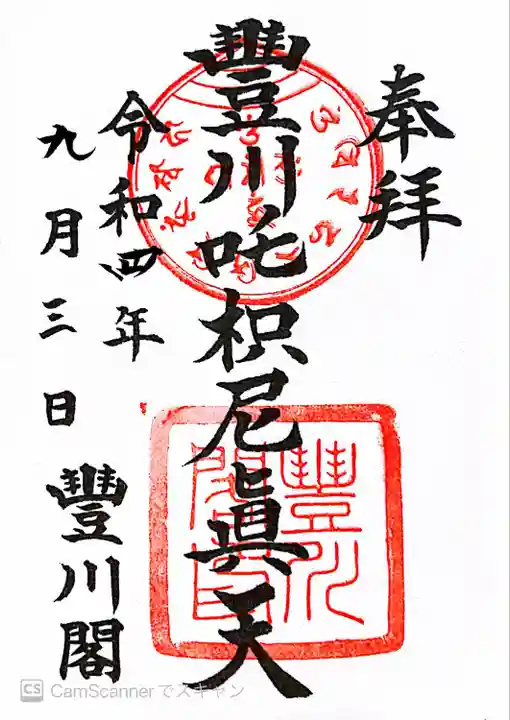 奉拝
豐川吒枳尼眞天
令和四年
九月三日
豐川閣
豐川
閣印
CS CamScannerでスキャン